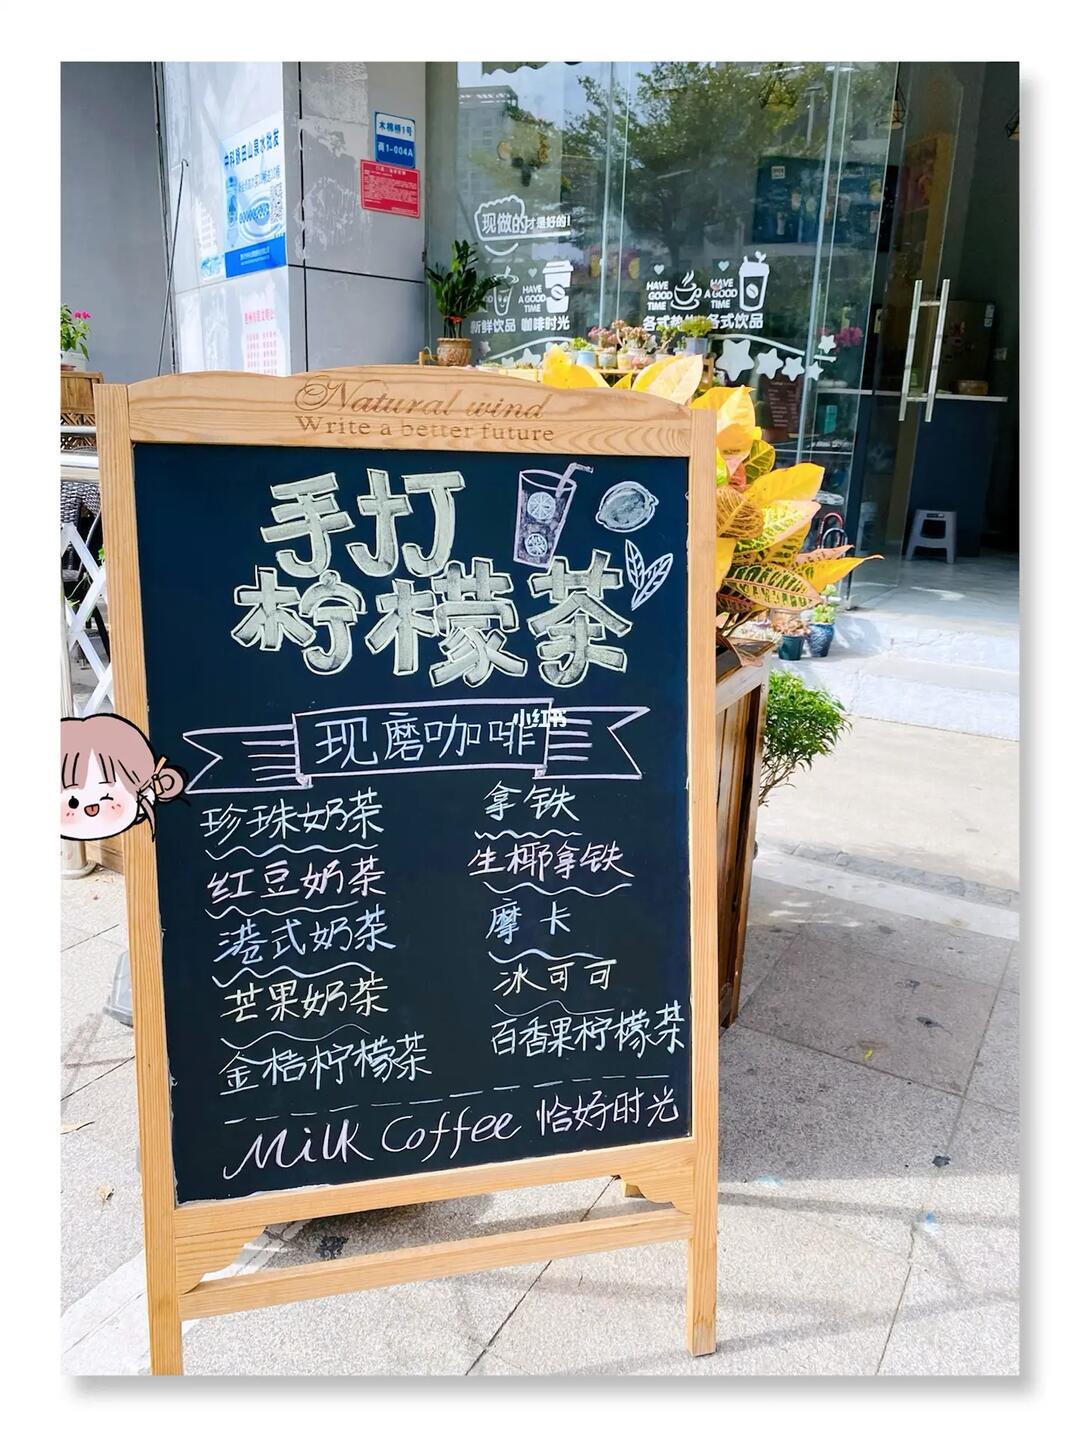 中科绿田山泉水批发
木棉桥1号
商1-004A
现做的才是好的!
HAVE
A GOOD
TIME
新鲜饮品 咖啡时光
HAVE
GOOD
TIME
HAVE
A GOOD
TIME
各式饮品
Natural wind
Write a better future
手打
柠檬茶
小红书
现磨咖啡
珍珠奶茶
拿铁
红豆奶茶
生椰拿铁
港式奶茶
摩卡
芒果奶茶
冰可可
金桔柠檬茶
百香果柠檬茶
Milk Coffee 恰好时光